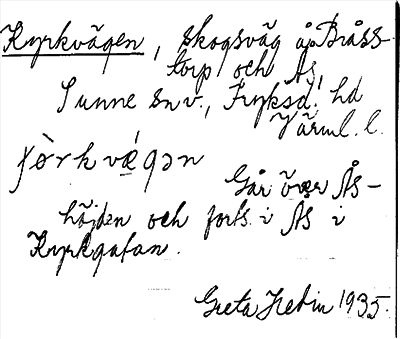 Kyrkvägen, skogsväg åp Bråss-
torp och Ås,
Sunne snv., Fryksd. hd
Värml. l.
Går över Ås-
höjden och forts. i Ås i
Kyrkgatan.
Greta Hedin 1935.